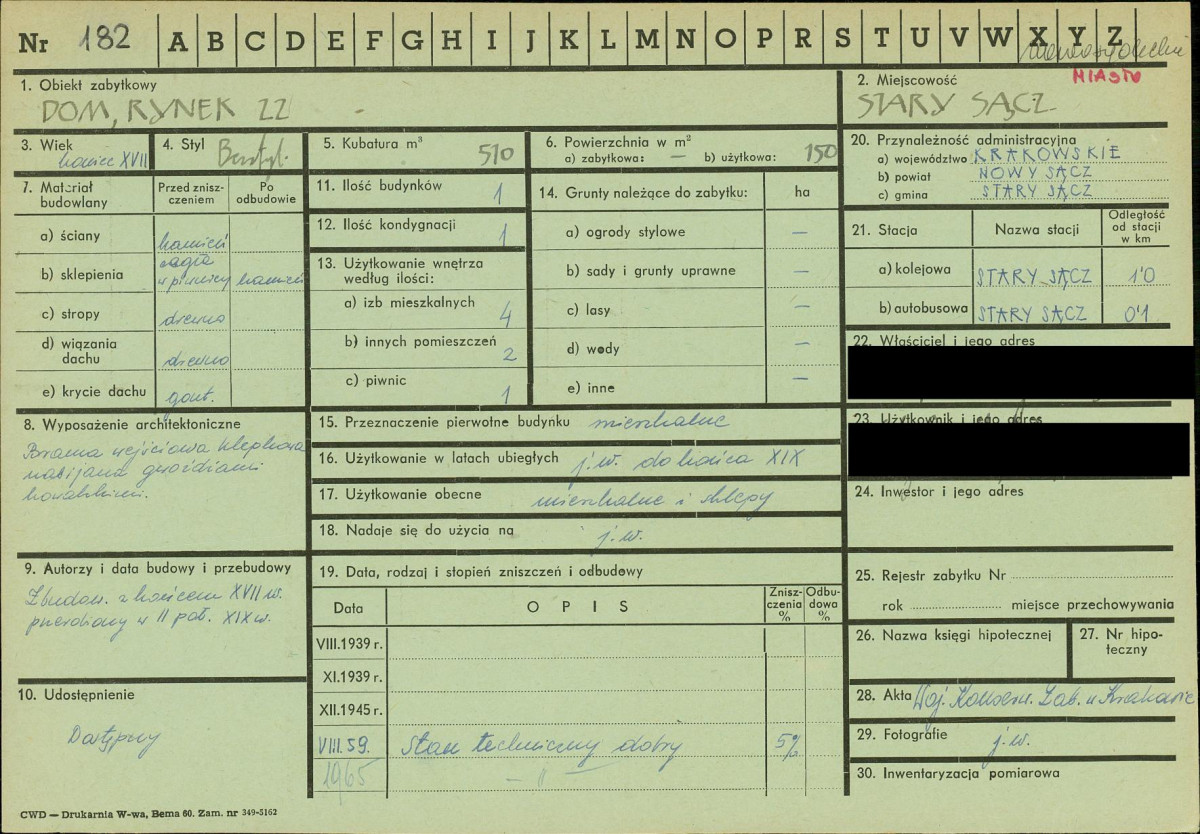 Nr 182 A B C D E F G H I J K L M N O P R S T U V W X Y Z
MIASTO
1. Obiekt zabytkowy
DOM, RYNEK 22
2. Miejscowość
STARY SĄCZ
3. Wiek
koniec XVII
4. Styl Bezstyl.
5. Kubatura m³
510
6. Powierzchnia w m²
a) zabytkowa: — b) użytkowa: 150
20. Przynależność administracyjna
a) województwo KRAKOWSKIE
b) powiat NOWY SĄCZ
c) gmina STARY SĄCZ
7. Materiał budowlany
Przed zniszczeniem
Po odbudowie
a) ściany
kamień
cegła
b) sklepienia w piwnicy kamień
c) stropy drewno
d) wiązania dachu drewno
e) krycie dachu gont.
11. Ilość budynków 1
12. Ilość kondygnacji 1
13. Użytkowanie wnętrza według ilości:
a) izb mieszkalnych 4
b) innych pomieszczeń 2
c) piwnic 1
14. Grunty należące do zabytku: ha
a) ogrody stylowe —
b) sady i grunty uprawne —
c) lasy —
d) wody —
e) inne —
21. Stacja
Nazwa stacji
Odległość od stacji w km
a) kolejowa STARY SĄCZ 1'0
b) autobusowa STARY SĄCZ 0'1
22. Właściciel i jego adres
23. Użytkownik i jego adres
24. Inwestor i jego adres
8. Wyposażenie architektoniczne
Brama wejściowa klepkowa
nabijana gwoździami
kowalskimi.
15. Przeznaczenie pierwotne budynku mieszkalne
16. Użytkowanie w latach ubiegłych j.w. do końca XIX
17. Użytkowanie obecne mieszkalne i sklepy
18. Nadaje się do użycia na j.w.
9. Autorzy i data budowy i przebudowy
Zbudow. z końcem XVII w.
w II poł. XIX w.
10. Udostępnienie
Dostępny
19. Data, rodzaj i stopień zniszczeń i odbudowy
Data
OPIS
Zniszczenia %
Odbudowa %
VIII.1939 r.
XI.1939 r.
XII.1945 r.
VIII.59. Stan techniczny dobry 5%
1965 — " —
25. Rejestr zabytku Nr
rok miejsce przechowywania
26. Nazwa księgi hipotecznej
27. Nr hipoteczny
28. Akta Woj. Konserw. Zab. w Krakowie
29. Fotografie j.w.
30. Inwentaryzacja pomiarowa
CWD — Drukarnia W-wa, Bema 60. Zam. nr 349-5162